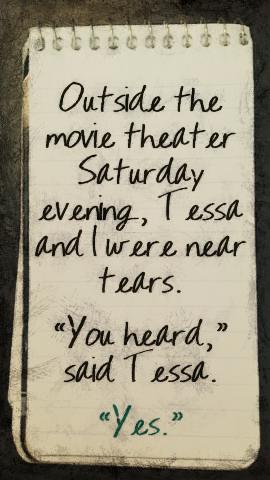 Outside the
movie theater
Saturday
evening, Tessa
and I were near
tears.
“You heard,”
said Tessa.
“Yes.”